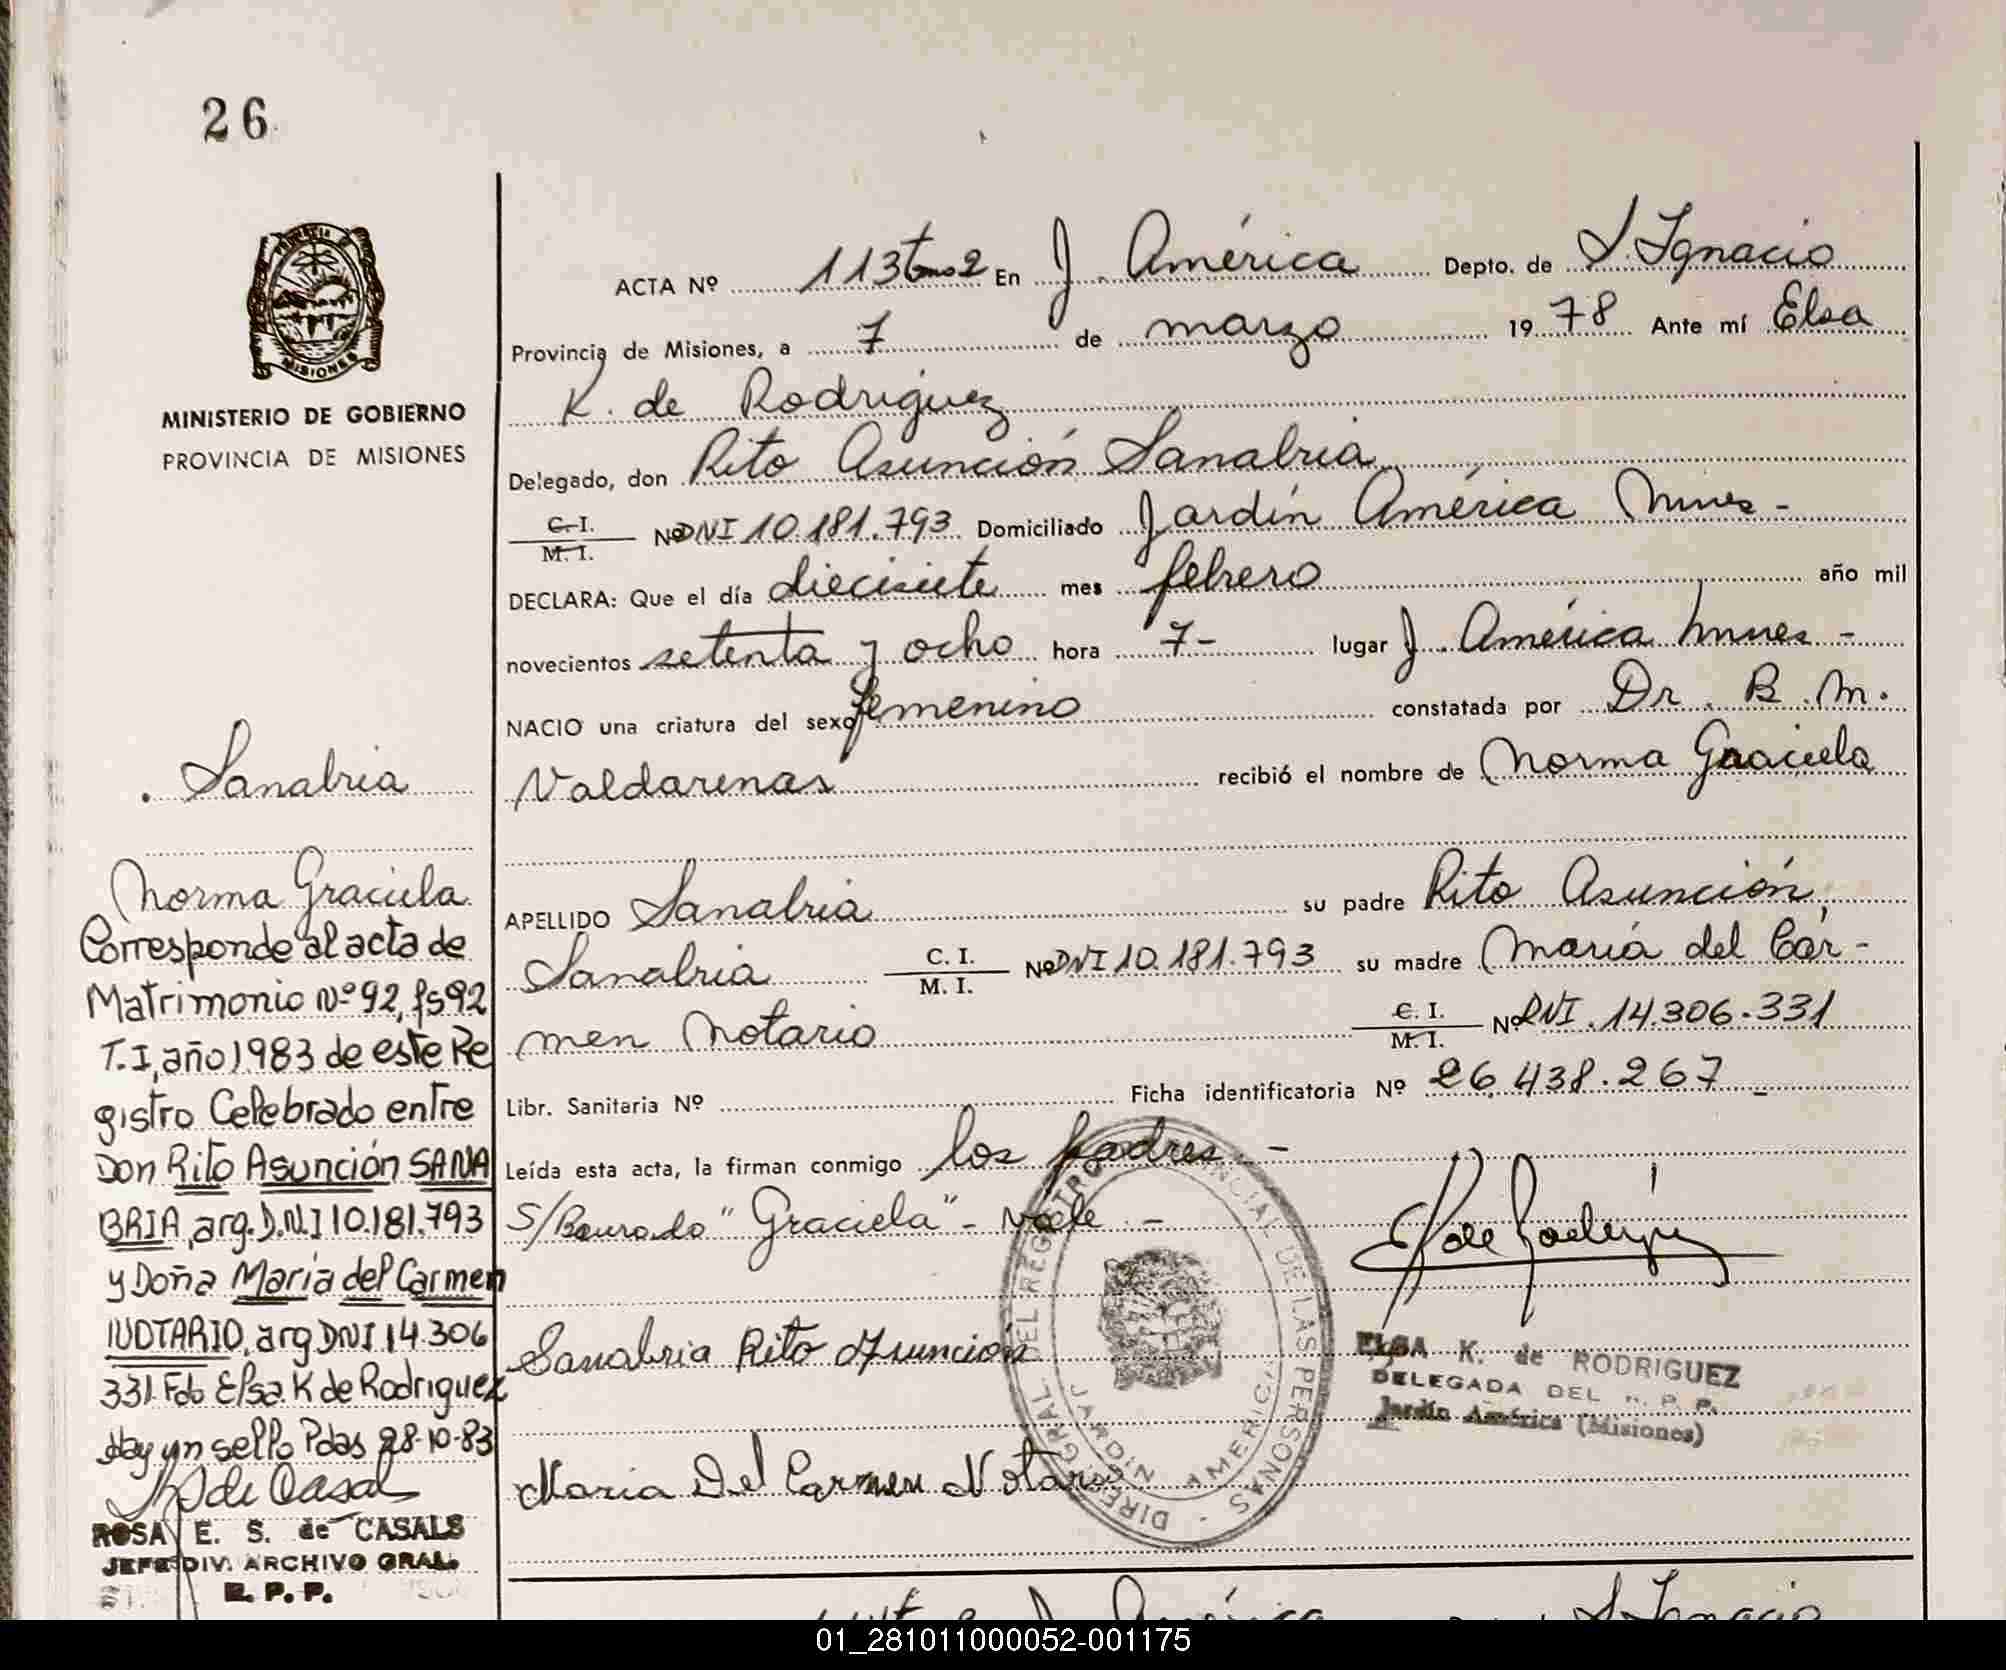 26
PROVINCIA DE
MISIONES
MINISTERIO DE GOBIERNO
PROVINCIA DE MISIONES
ACTA Nº 113 tomo 2 En J. América Depto. de S. Ignacio
Provincia de Misiones, a 7 de marzo 1978 Ante mí Elsa
K. de Rodriguez
Delegado, don Rito Asunción Sanabria
C. I. / M. I. Nº DNI 10.181.793 Domiciliado Jardín América Mnes -
DECLARA: Que el día diecisiete mes febrero año mil
novecientos setenta y ocho hora 7- lugar J. América Mnes -
NACIO una criatura del sexo femenino constatada por Dr. B. M.
Valdarenas recibió el nombre de Norma Graciela
APELLIDO Sanabria su padre Rito Asunción
Sanabria C. I. / M. I. Nº DNI 10.181.793 su madre María del Cár-
men Notario C. I. / M. I. Nº DNI. 14.306.331
Libr. Sanitaria Nº Ficha identificatoria Nº 26.438.267 -
Leída esta acta, la firman conmigo los padres -
S/Bourado "Graciela" - Vale -
Sanabria Rito Asunción
Maria Del Carmen Notario
DIREC. GRAL. DEL REGISTRO PROVINCIAL DE LAS PERSONAS -
JARDIN AMERICA
E K de Rodriguez
ELSA K. de RODRIGUEZ
DELEGADA DEL R. P. P.
Jardín América (Misiones)
Sanabria
Norma Graciela
Corresponde al acta de
Matrimonio Nº 92, fs 92
T. I, año 1983 de este Re
gistro Celebrado entre
Don Rito Asunción SANA
BRIA, arg. D.N.I 10.181.793
y Doña María del Carmen
NOTARIO, arg DNI 14.306
331. Fdo Elsa K de Rodriguez
Hay un sello Pdas 28-10-83
de Casals
ROSA E. S. de CASALS
JEFE DIV. ARCHIVO GRAL.
R. P. P.
J. América S. Ignacio
01_281011000052-001175